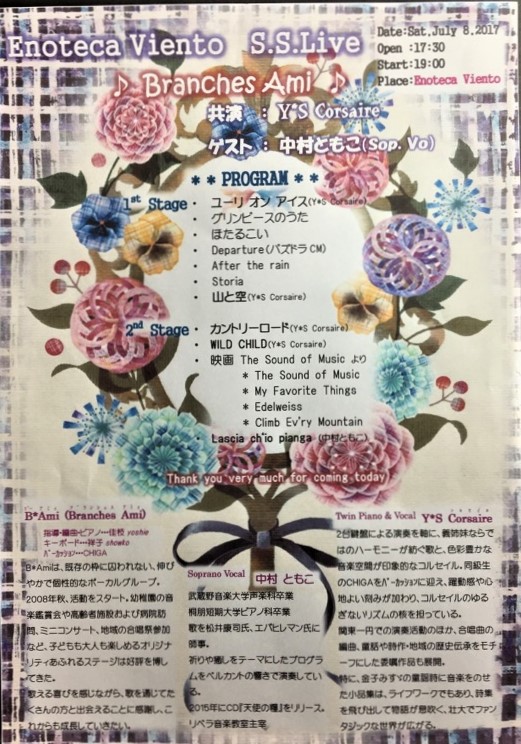 Enoteca Viento S.S.Live
Date:Sat,July 8,2017
Open :17:30
Start:19:00
Place:Enoteca Viento
♪ Branches Ami ♪
共演 : Y*S Corsaire
ゲスト : 中村ともこ(Sop. Vo)
** PROGRAM **
1st Stage ・ ユーリ オン アイス(Y*S Corsaire)
・ グリンピースのうた
・ ほたるこい
・ Departure(パズドラCM)
・ After the rain
・ Storia
・ 山と空(Y*S Corsaire)
2nd Stage ・ カントリーロード(Y*S Corsaire)
・ WILD CHILD(Y*S Corsaire)
・ 映画 The Sound of Music より
* The Sound of Music
* My Favorite Things
* Edelweiss
* Climb Ev'ry Mountain
・ Lascia ch'io pianga (中村ともこ)
Thank you very much for coming today
B*Ami (Branches Ami)
指導・編曲・ピアノ…佳枝 yoshie
キーボード…祥子 shoko
パーカッション…CHIGA
B*Amiは、既存の枠に囚われない、伸び
やかで個性的なボーカルグループ。
2008年秋、活動をスタート。幼稚園の音
楽鑑賞会や高齢者施設および病院訪
問、ミニコンサート、地域の合唱祭参加
など、子どもも大人も楽しめるオリジナ
リティあふれるステージは好評を博し
てきた。
歌える喜びを感じながら、歌を通じてた
くさんの方と出会えることに感謝し、こ
れからも成長していきたい。
Soprano Vocal 中村 ともこ
武蔵野音楽大学声楽科卒業
桐朋短期大学ピアノ科卒業
歌を松井康司氏、エバヒレマン氏に
師事。
祈りや癒しをテーマにしたプログラ
ムをベルカントの響きで演奏してい
る。
2015年にCD『天使の糧』をリリース。
リベラ音楽教室主宰
Twin Piano & Vocal Y*S Corsaire
2台鍵盤による演奏を軸に、義姉妹ならで
はのハーモニーが紡ぐ歌と、色彩豊かな
音楽空間が印象的なコルセイル。同級生
のCHIGAをパーカッションに迎え、躍動感や心
地よい刻みが加わり、コルセイルのゆる
ぎないリズムの核を担っている。
関東一円での演奏活動のほか、合唱曲の
編曲、童話や詩作・地域の歴史伝承をモチ
ーフにした委嘱作品も展開。
特に、金子みすゞの童謡詩に音楽をのせ
た小品集は、ライフワークでもあり、詩集
を飛び出して物語が息吹く、壮大でファン
タジックな世界が広がる。